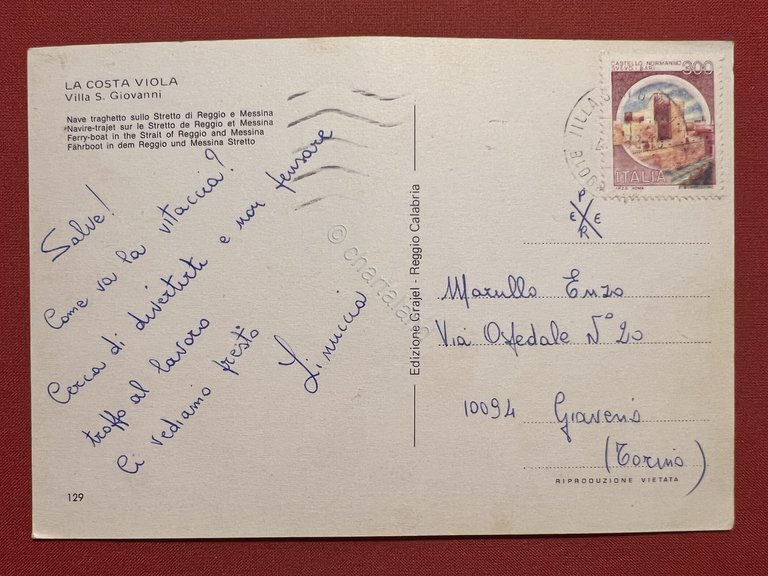 LA COSTA VIOLA
Villa S. Giovanni
Nave traghetto sullo Stretto di Reggio e Messina
Navire-trajet sur le Stretto de Reggio et Messina
Ferry-boat in the Strait of Reggio and Messina
Fährboot in dem Reggio und Messina Stretto
Salve!
Come va la vitaccia?
Cerca di divertirti e non pensare
troppo al lavoro
Ci vediamo presto
Linuccia
129
Edizione Grajel - Reggio Calabria
CASTELLO NORMANNO
SVEVO - BARI
300
ITALIA
I.P.Z.S. ROMA
PER
E E
Marullo Enzo
Via Ospedale N° 20
10094 Giaveno
(Torino)
RIPRODUZIONE VIETATA
© chartaland